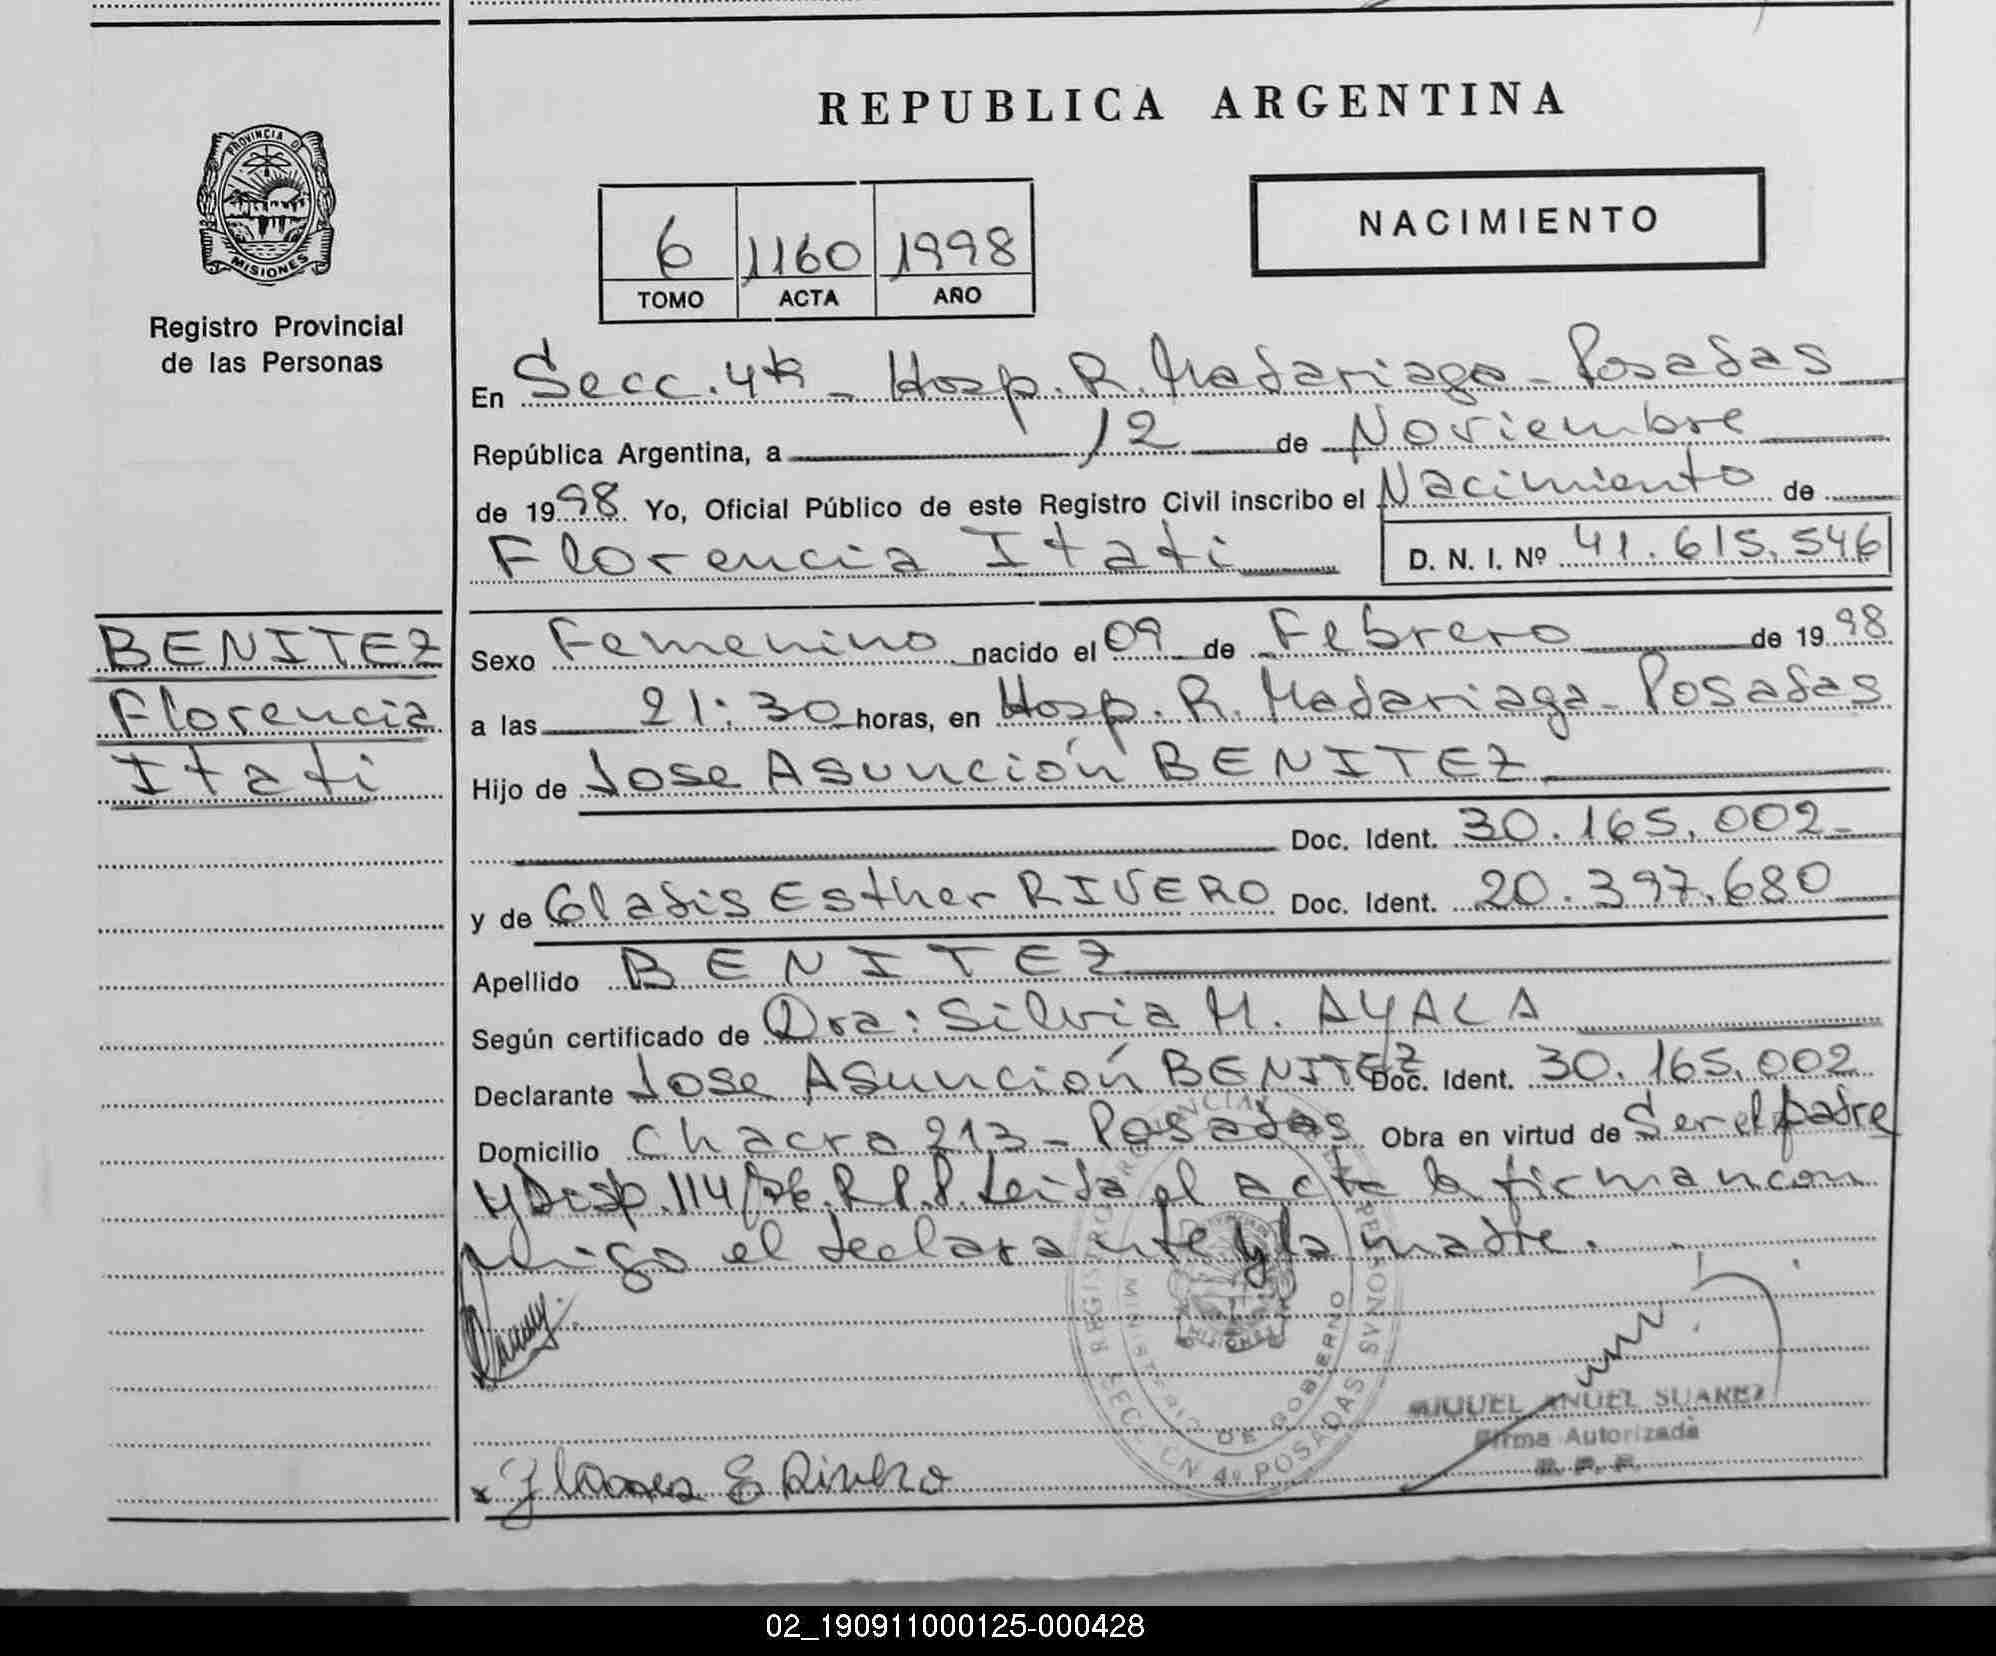 REPUBLICA ARGENTINA
PROVINCIA DE
MISIONES
Registro Provincial
de las Personas
NACIMIENTO
6 1160 1998
TOMO ACTA AÑO
En Secc. 4ta - Hosp. R. Madariaga - Posadas
República Argentina, a 12 de Noviembre
de 1998 Yo, Oficial Público de este Registro Civil inscribo el Nacimiento de
Florencia Itati D. N. I. Nº 41.615.546
BENITEZ
Florencia
Itati
Sexo Femenino nacido el 09 de Febrero de 1998
a las 21:30 horas, en Hosp. R. Madariaga - Posadas
Hijo de Jose Asunción BENITEZ
Doc. Ident. 30.165.002-
y de Gladis Esther RIVERO Doc. Ident. 20.397.680
Apellido BENITEZ
Según certificado de Dra: Silvia M. AYALA
Declarante Jose Asunción BENITEZ Doc. Ident. 30.165.002
Domicilio Chacra 213 - Posadas Obra en virtud de Ser el padre
y Disp. 114/ R.P.P. Leida el acta la firman con
migo el declarante y la madre.
REGISTRO PROVINCIAL DE LAS PERSONAS
MINISTERIO DE GOBIERNO
SECCION 4º POSADAS
MIGUEL ANGEL SUAREZ
Firma Autorizada
R. P. P.
E Rivero
02_190911000125-000428